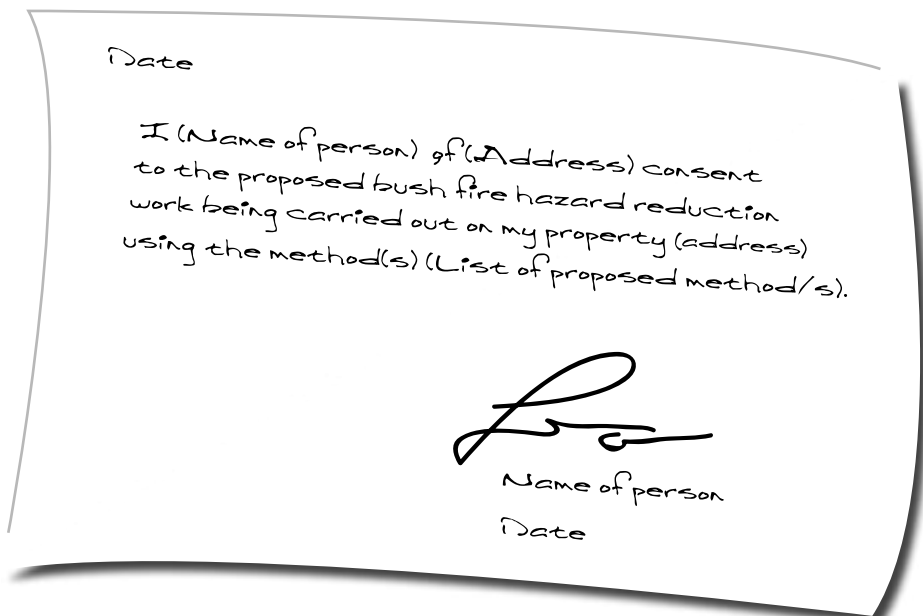 Date
I (Name of person) of (Address) consent
to the proposed bush fire hazard reduction
work being carried out on my property (address)
using the method(s) (List of proposed method/s).
Name of person
Date